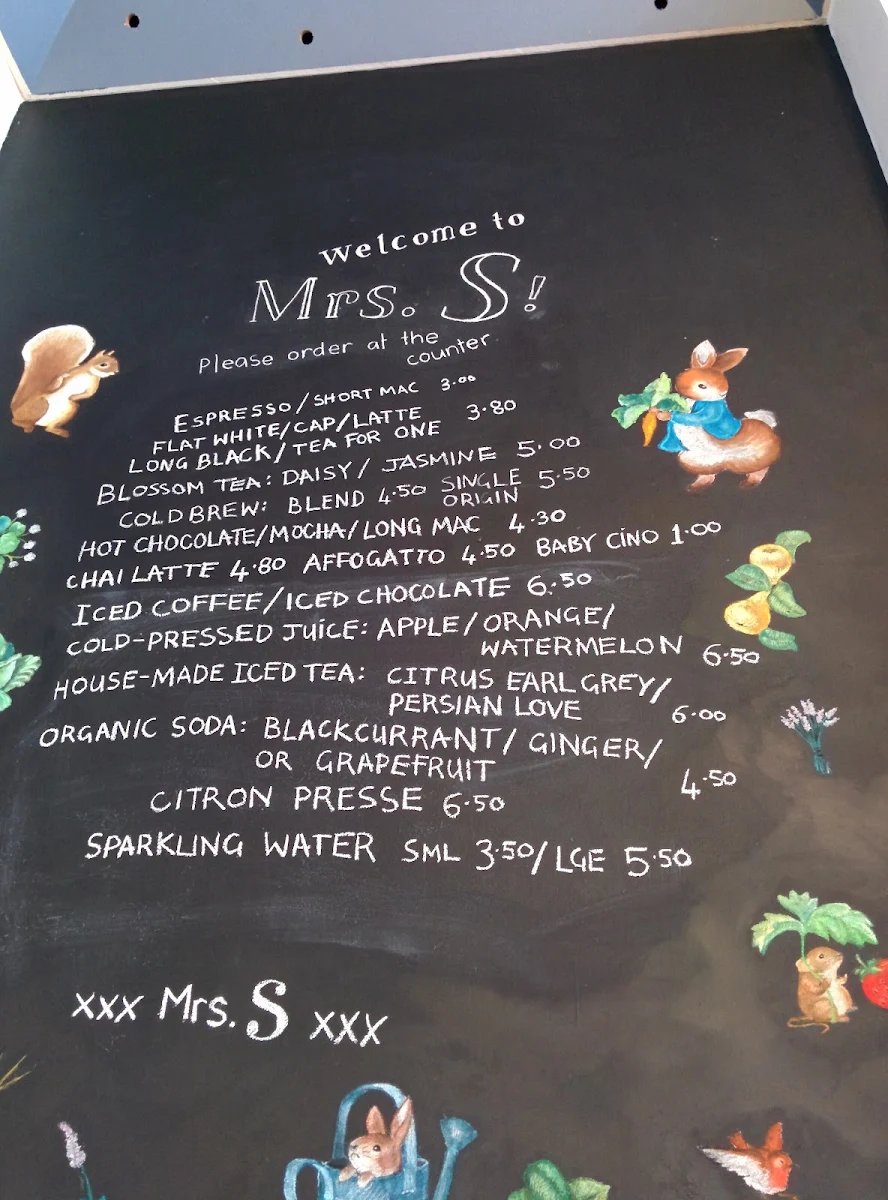 welcome to
Mrs. S!
Please order at the
counter
ESPRESSO/SHORT MAC 3.00
FLAT WHITE/CAP/LATTE 3.80
LONG BLACK/TEA FOR ONE
BLOSSOM TEA: DAISY/JASMINE 5.00
COLD BREW: BLEND 4.50 SINGLE ORIGIN 5.50
HOT CHOCOLATE/MOCHA/LONG MAC 4.30
CHAI LATTE 4.80 AFFOGATTO 4.50 BABY CINO 1.00
ICED COFFEE/ICED CHOCOLATE 6.50
COLD-PRESSED JUICE: APPLE/ORANGE/
WATERMELON 6.50
HOUSE-MADE ICED TEA: CITRUS EARL GREY/
PERSIAN LOVE 6.00
ORGANIC SODA: BLACKCURRANT/GINGER/
OR GRAPEFRUIT 4.50
CITRON PRESSE 6.50
SPARKLING WATER SML 3.50/LGE 5.50
xxx Mrs. S xxx